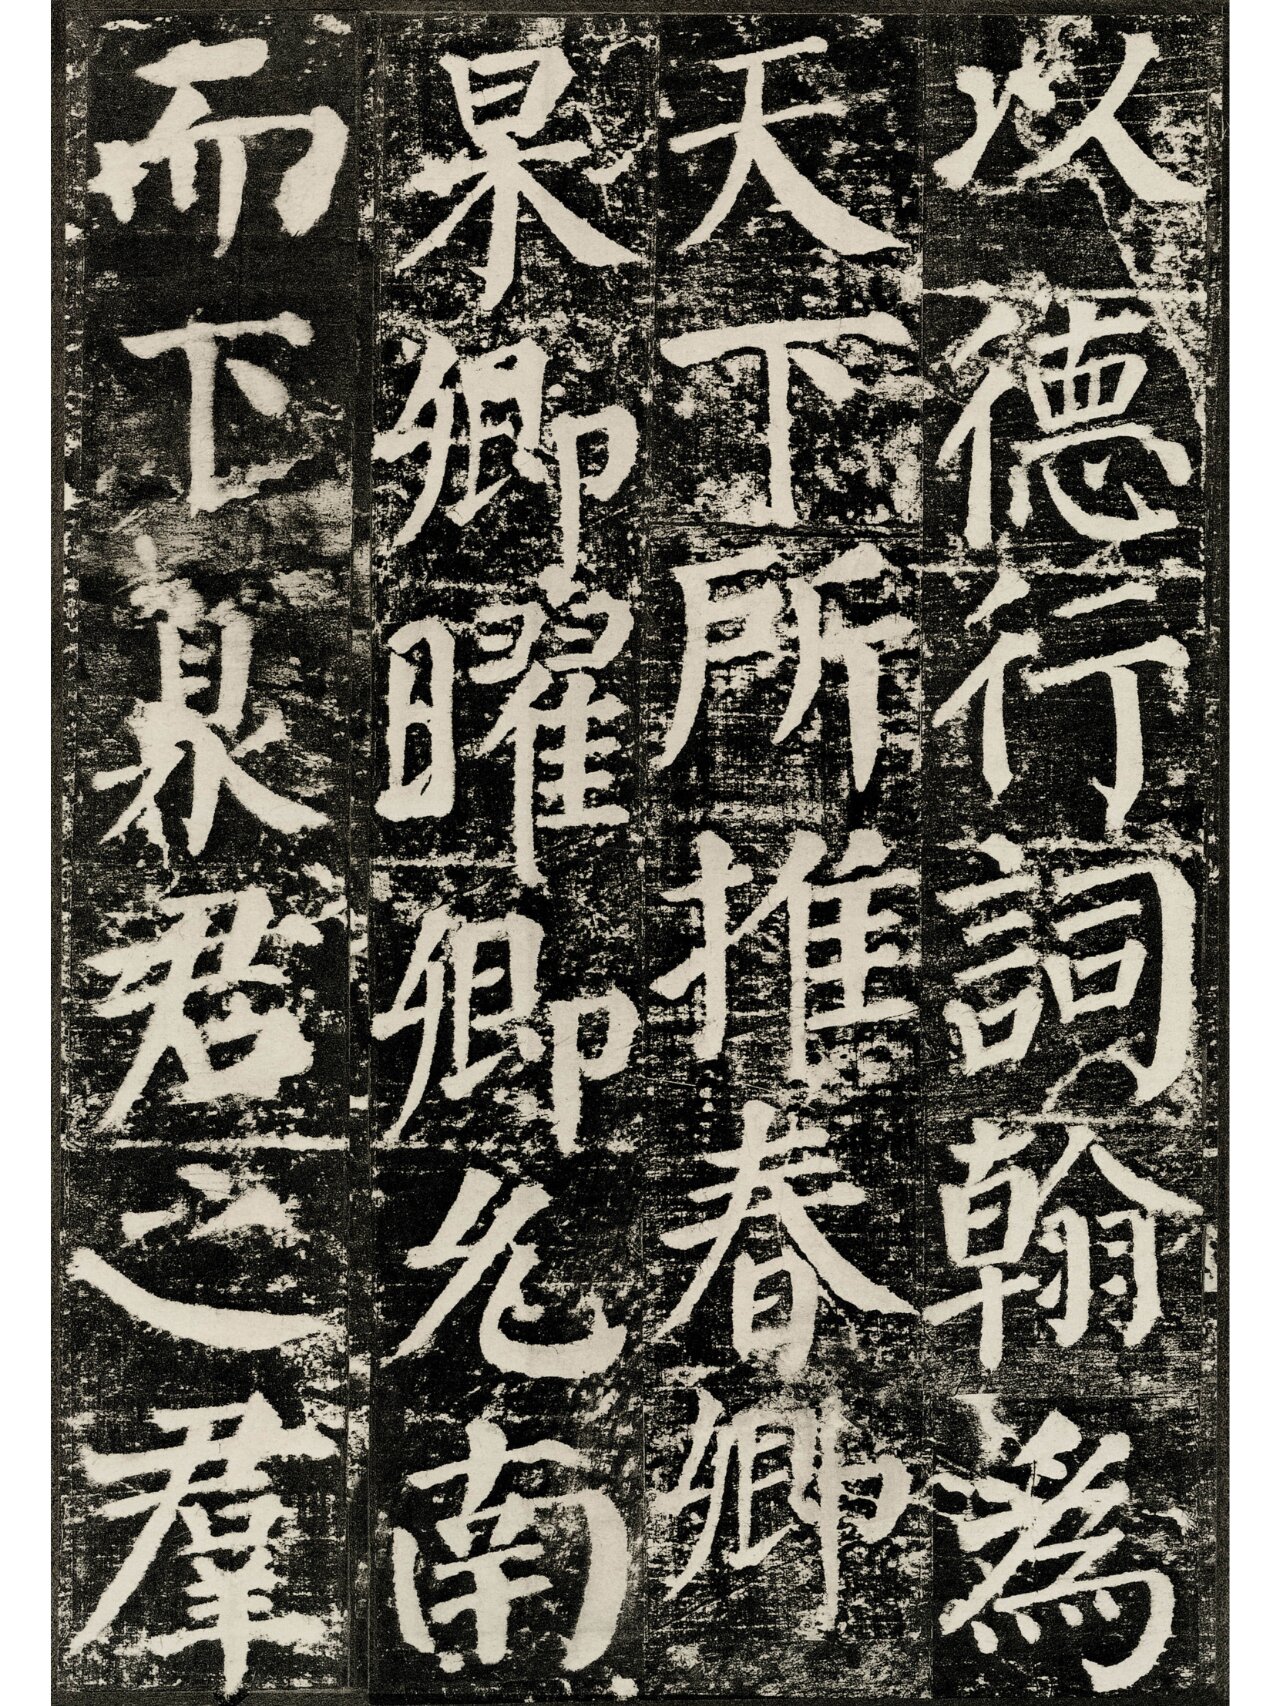 以德行詞翰為
天下所推春卿
杲卿曜卿允南
而下臮君之羣